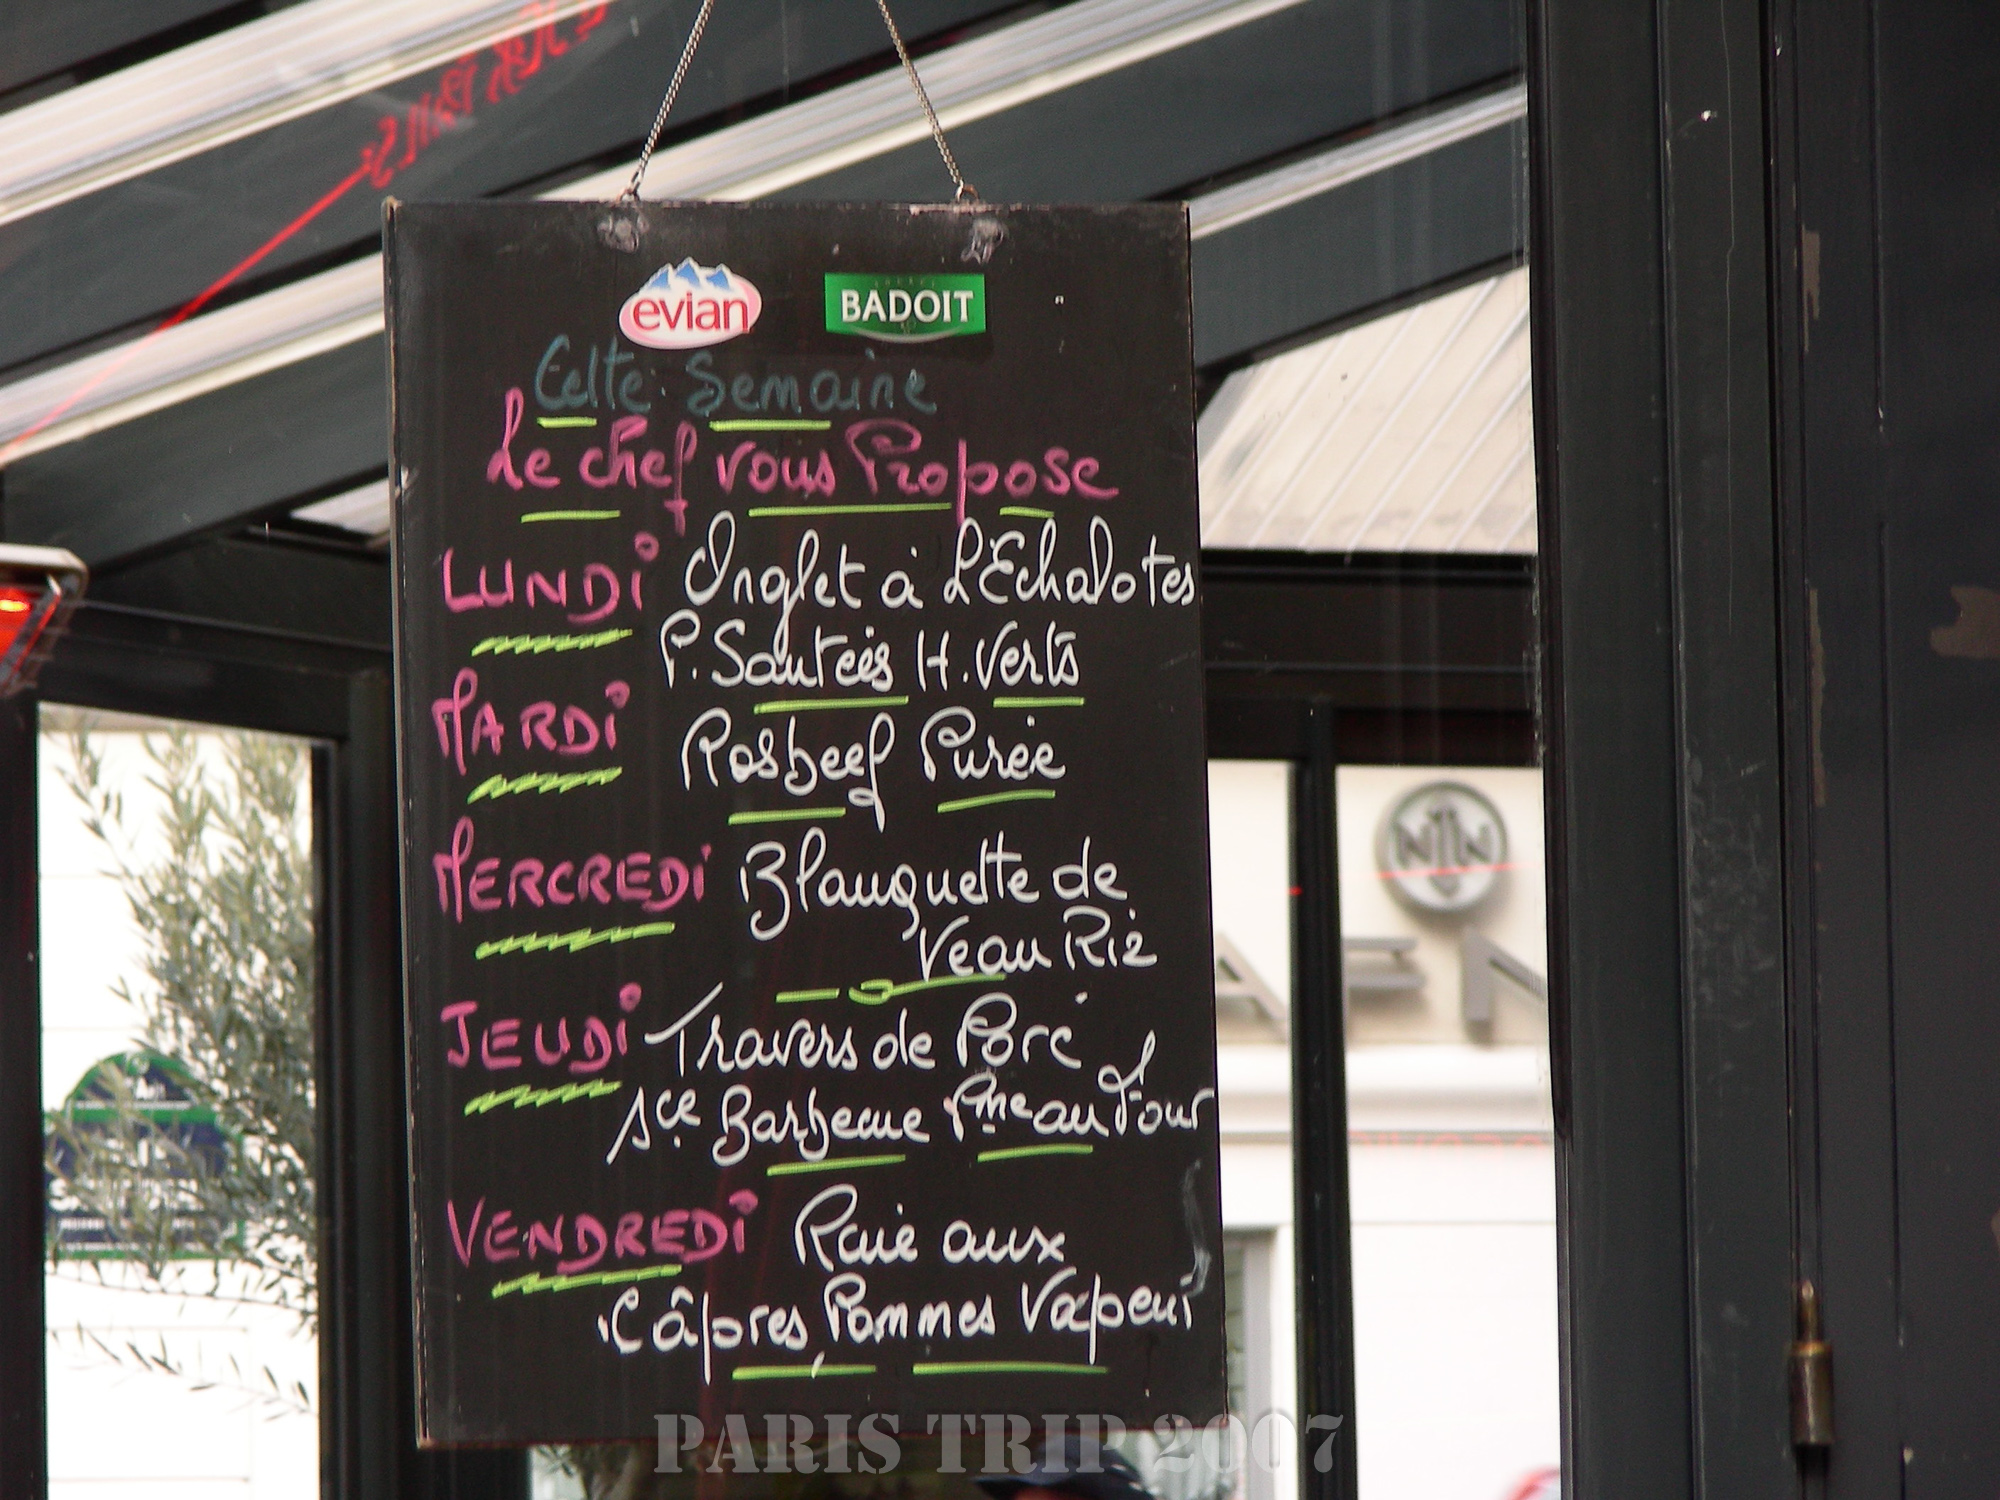 evian BADOIT
Cette Semaine
Le chef vous Propose
LUNDI Onglet à L'Echalotes
P. Sautées H. Verts
MARDI Rosbeef Purée
MERCREDI Blanquette de
Veau Riz
JEUDI Travers de Porc
Sce Barbecue Pme au Four
VENDREDI Raie aux
Câpres, Pommes Vapeur
PARIS TRIP 2007